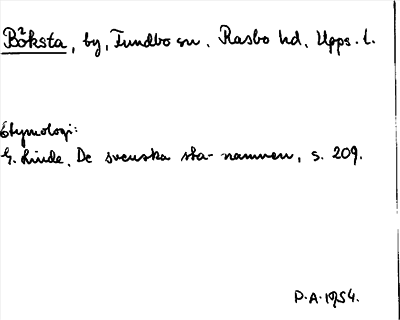 Böksta, by, Funbo sn. Rasbo hd. Upps. l.
Etymologi:
G. Linde, De svenska sta-namnen, s. 209.
P.A. 1954.